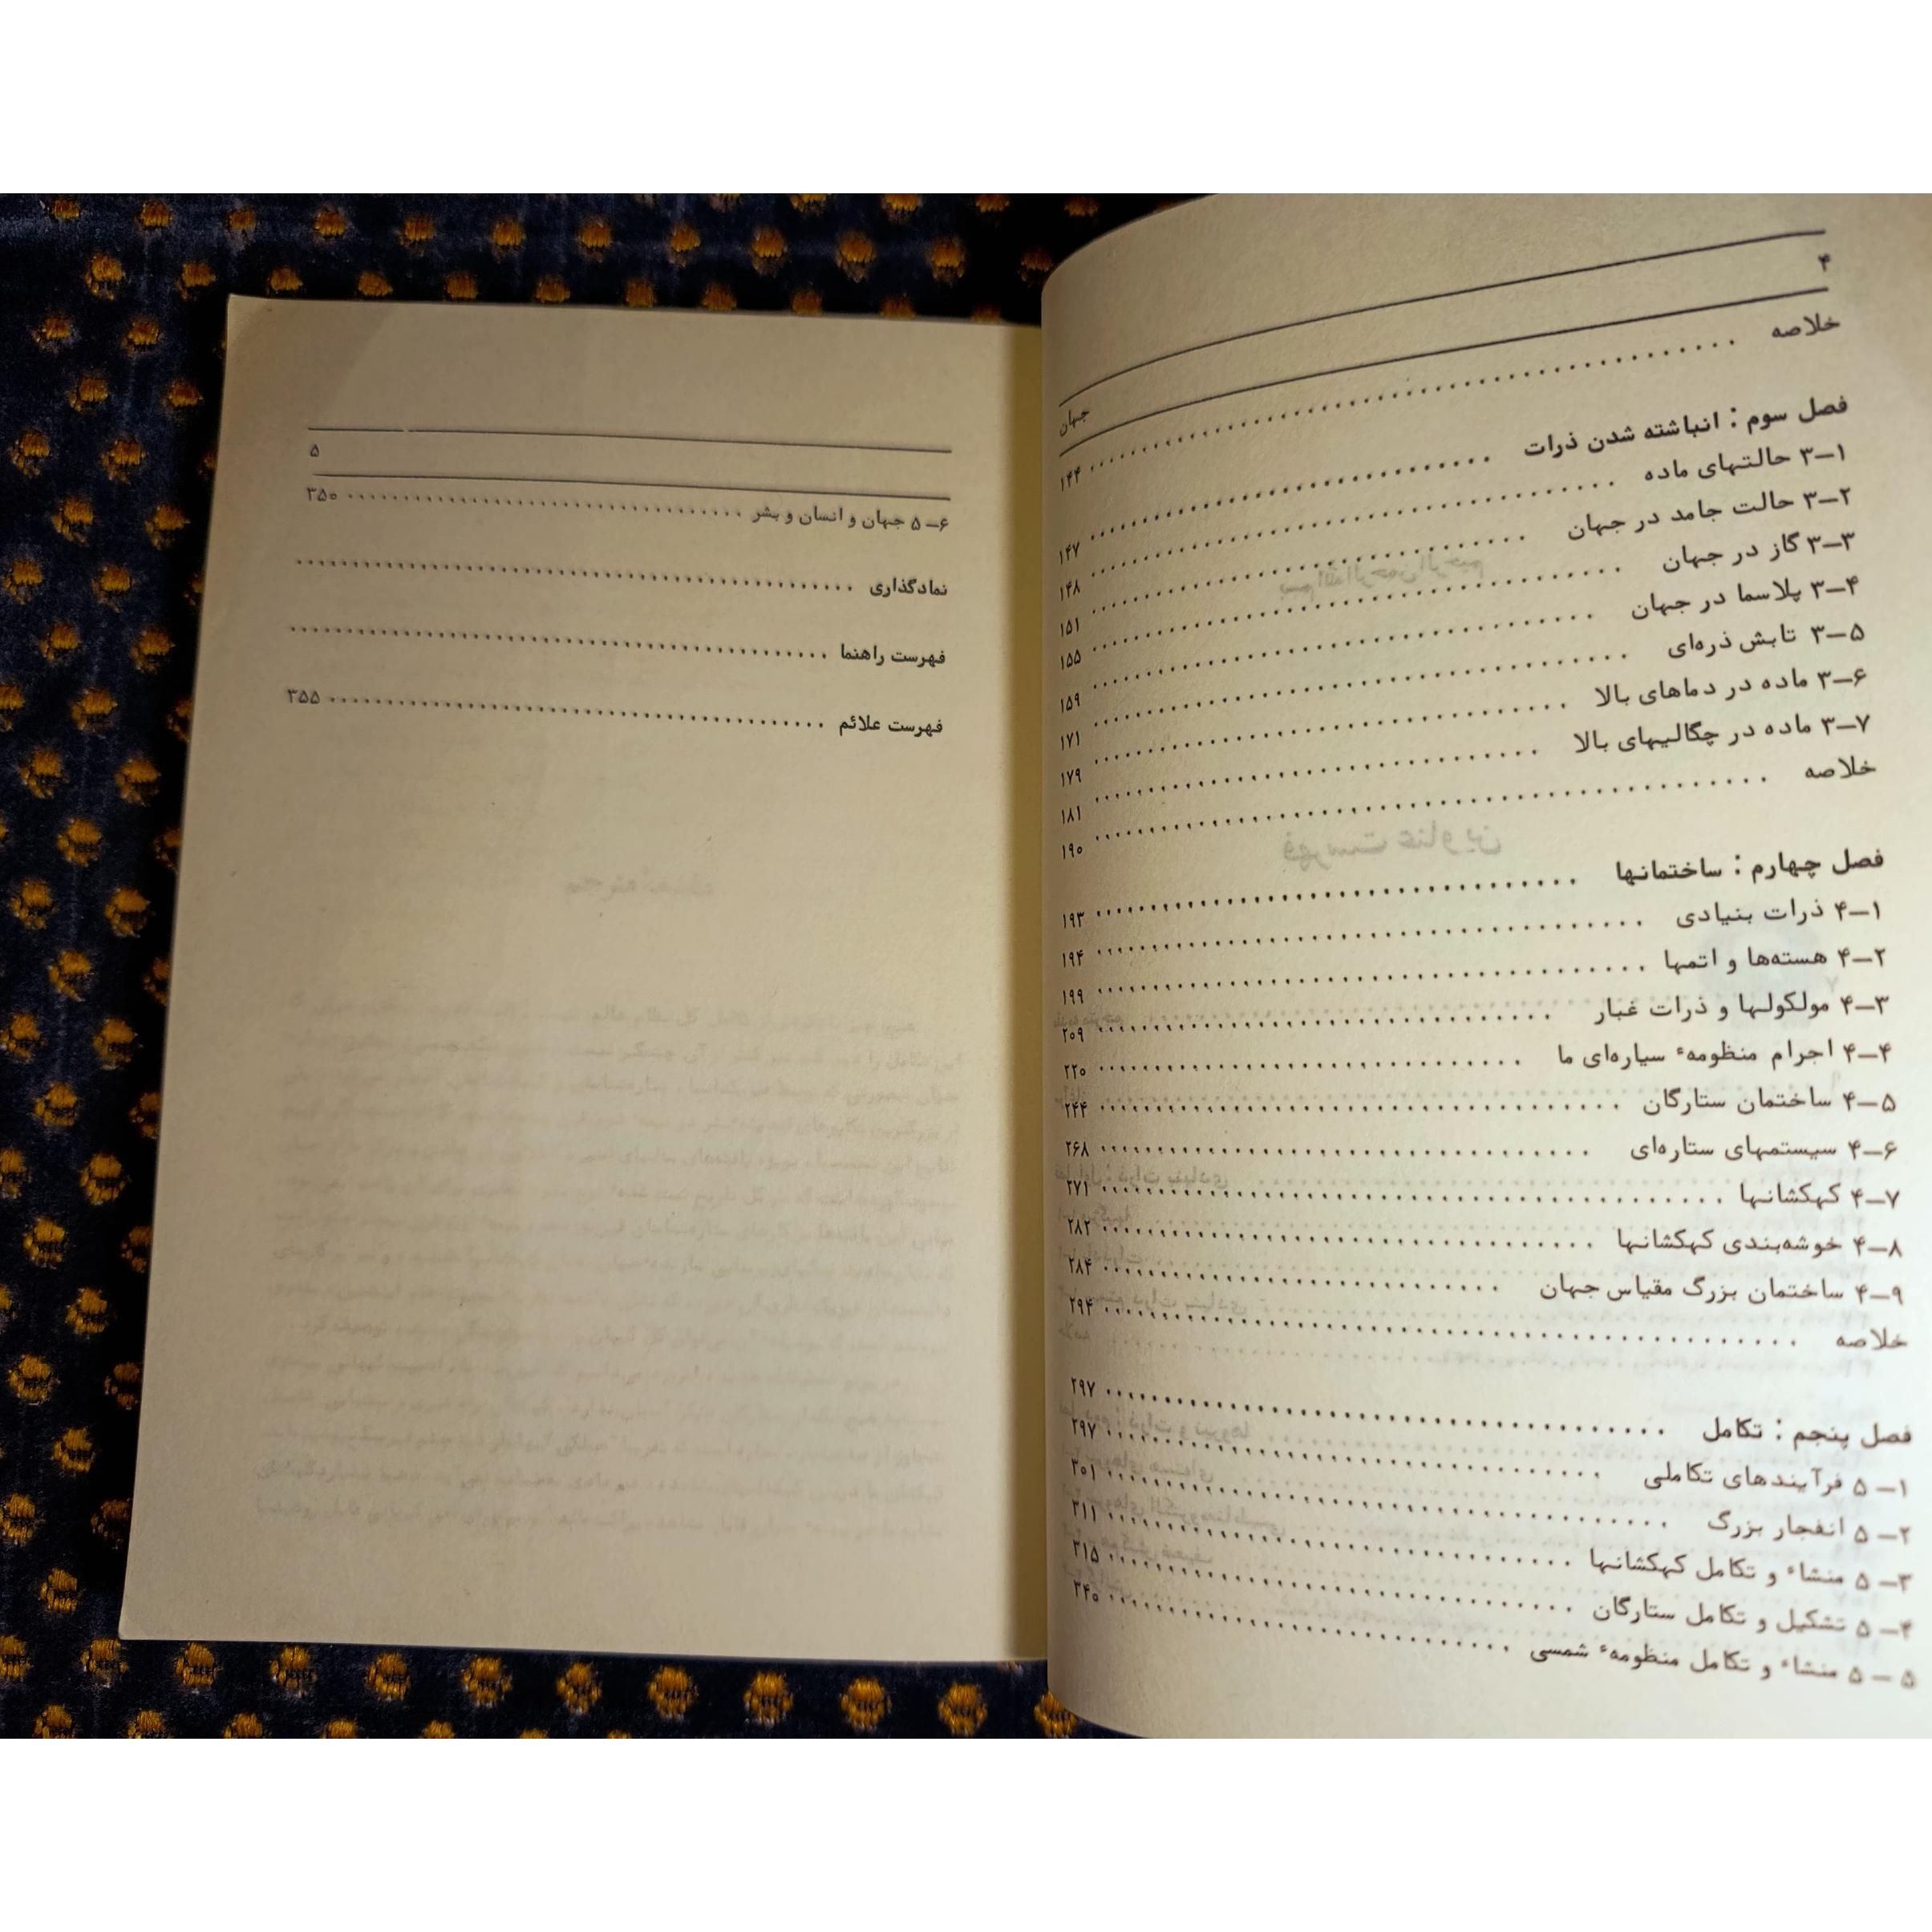 ۴
جهان
خلاصه ۱۴۴
فصل سوم : انباشته شدن ذرات ۱۴۷
۳—۱ حالتهای ماده ۱۴۸
۳—۲ حالت جامد در جهان ۱۵۱
۳—۳ گاز در جهان ۱۵۵
۳—۴ پلاسما در جهان ۱۵۹
۳—۵ تابش ذره‌ای ۱۷۱
۳—۶ ماده در دماهای بالا ۱۷۹
۳—۷ ماده در چگالیهای بالا ۱۸۱
خلاصه ۱۹۰
فصل چهارم : ساختمانها ۱۹۳
۴—۱ ذرات بنیادی ۱۹۴
۴—۲ هسته‌ها و اتمها ۱۹۹
۴—۳ مولکولها و ذرات غبار ۲۰۹
۴—۴ اجرام منظومهٔ سیاره‌ای ما ۲۲۰
۴—۵ ساختمان ستارگان ۲۴۴
۴—۶ سیستمهای ستاره‌ای ۲۶۸
۴—۷ کهکشانها ۲۷۱
۴—۸ خوشه‌بندی کهکشانها ۲۸۲
۴—۹ ساختمان بزرگ مقیاس جهان ۲۸۴
خلاصه ۲۹۴
فصل پنجم : تکامل ۲۹۷
۵ —۱ فرآیندهای تکاملی ۲۹۷
۵ —۲ انفجار بزرگ ۳۰۱
۵ —۳ منشاء و تکامل کهکشانها ۳۱۱
۵ —۴ تشکیل و تکامل ستارگان ۳۱۵
۵ — ۵ منشاء و تکامل منظومهٔ شمسی ۳۴۰
۵
۵ —۶ جهان و انسان و بشر ۳۵۰
نمادگذاری
فهرست راهنما
فهرست علائم ۳۵۵